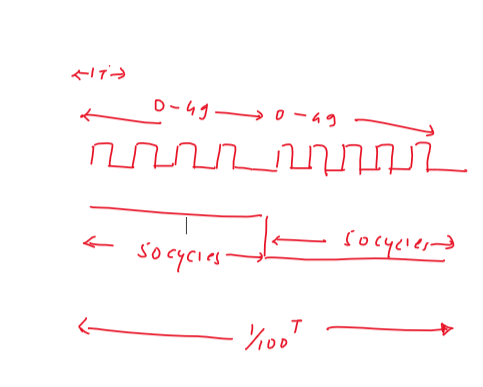 1T
0-49 0-49
50 cycles 50 cycles
1/100 T